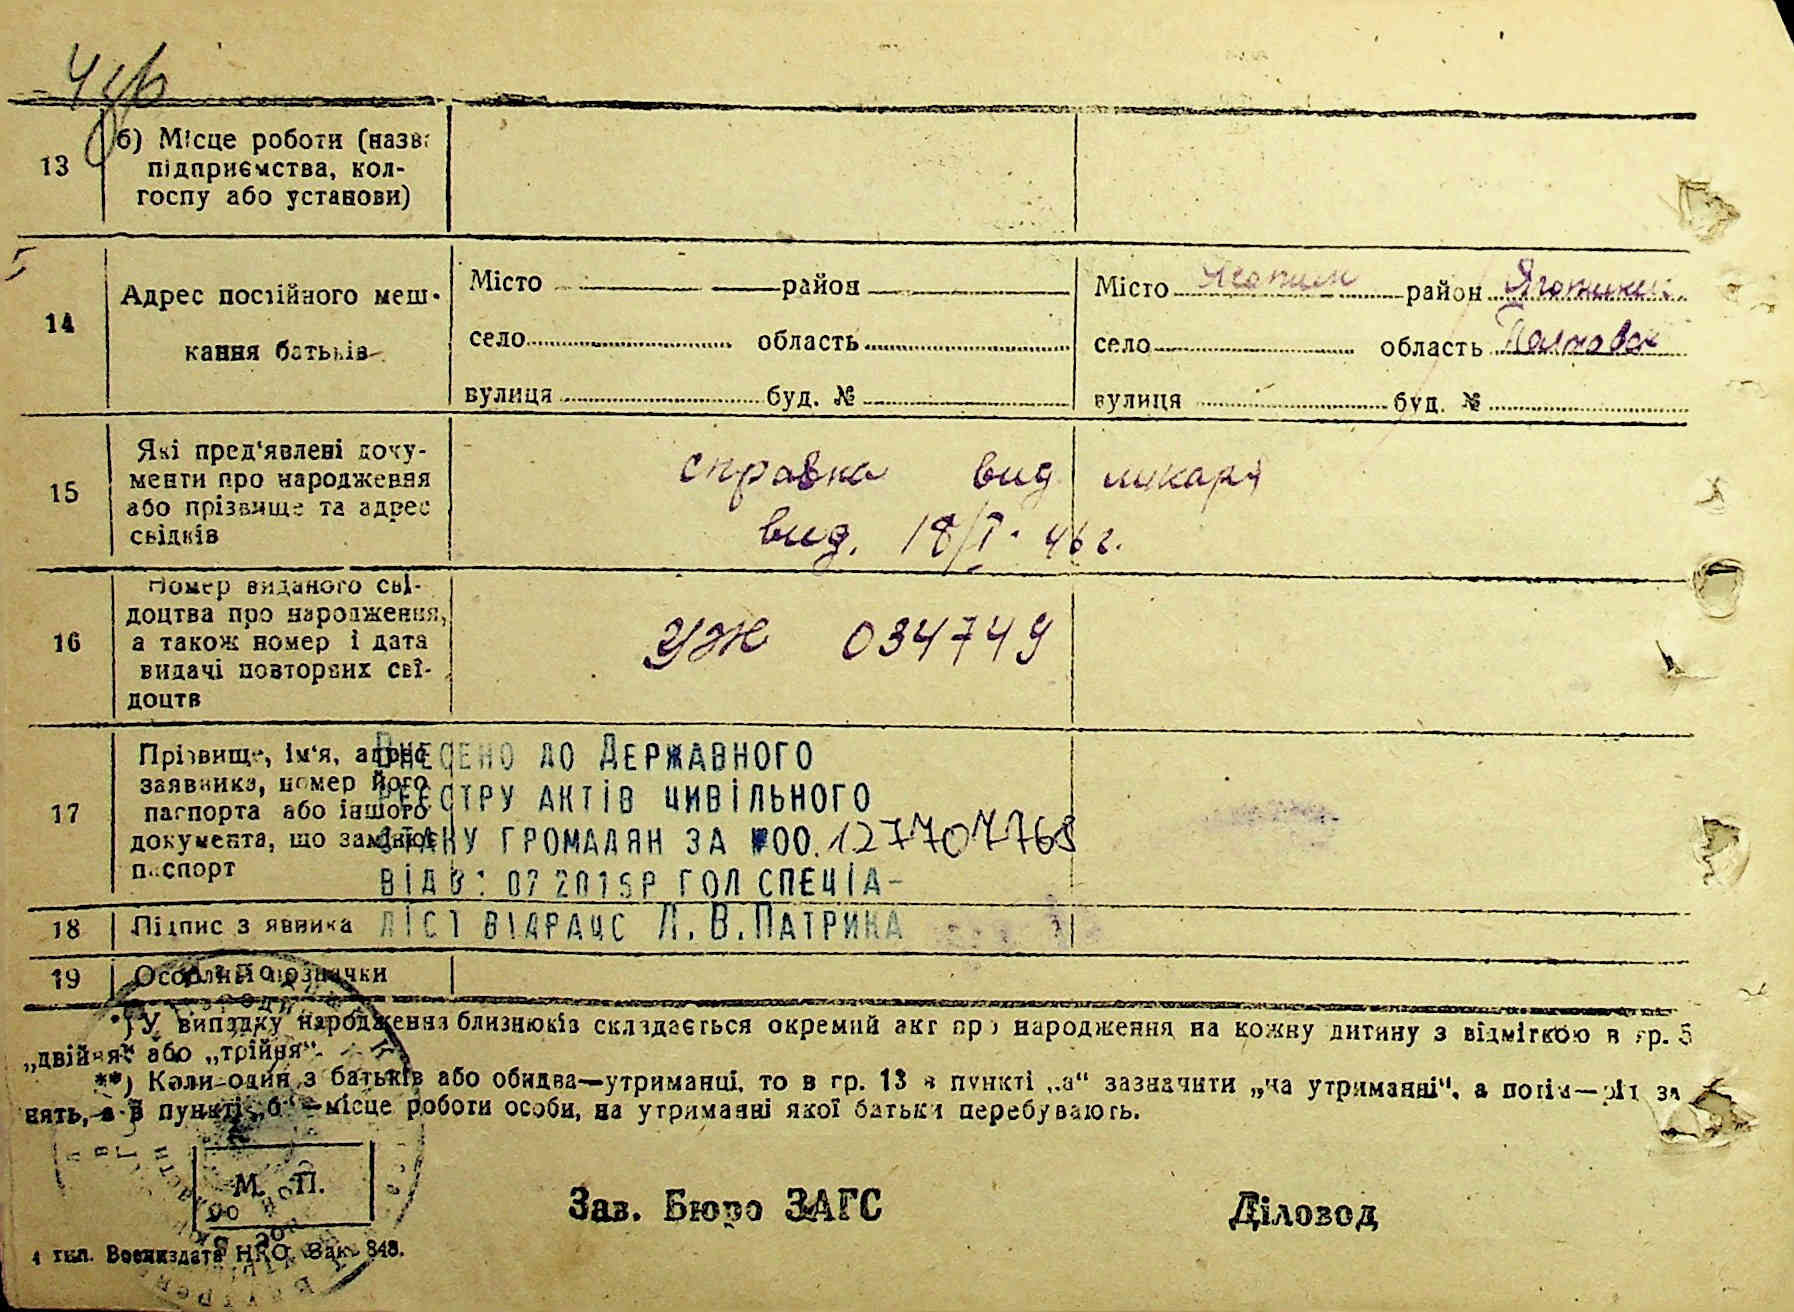 13
б) Місце роботи (назва
підприємства, кол-
госпу або установи)
14
Адрес постійного меш-
кання батьків
Місто район
село область
вулиця буд. №
Місто Яготин район Яготинськ
село область Полтавск
вулиця буд. №
15
Які пред'явлені доку-
менти про народження
або прізвище та адрес
свідків
справка вид ликаря
вид. 18/I. 46 г.
16
Номер виданого сві-
доцтва про народження,
а також номер і дата
видачі повторних сві-
доцтв
УЖ 034749
17
Прізвище, ім'я, адрес
заявника, номер його
паспорта або іншого
документа, що замінює
паспорт
Внесено до Державного
реєстру актів цивільного
стану громадян за №00127707768
2015р гол спеціа-
ліст відрацс Л.В.Патрика
18
Підпис заявника
19
Особливі позначки
*) У випадку народження близнюків складається окремий акт про народження на кожну дитину з відміткою в гр. 5
„двійня“ або „трійня“.
**) Коли один з батьків або обидва—утриманці, то в гр. 13 в пункті „а“ зазначити „на утриманні“, а потім—рід за
нять, а в пункті „б“—місце роботи особи, на утриманні якої батьки перебувають.
М. П.
Зав. Бюро ЗАГС
Діловод
4 тип. Воениздата НКО. Зак. 348.